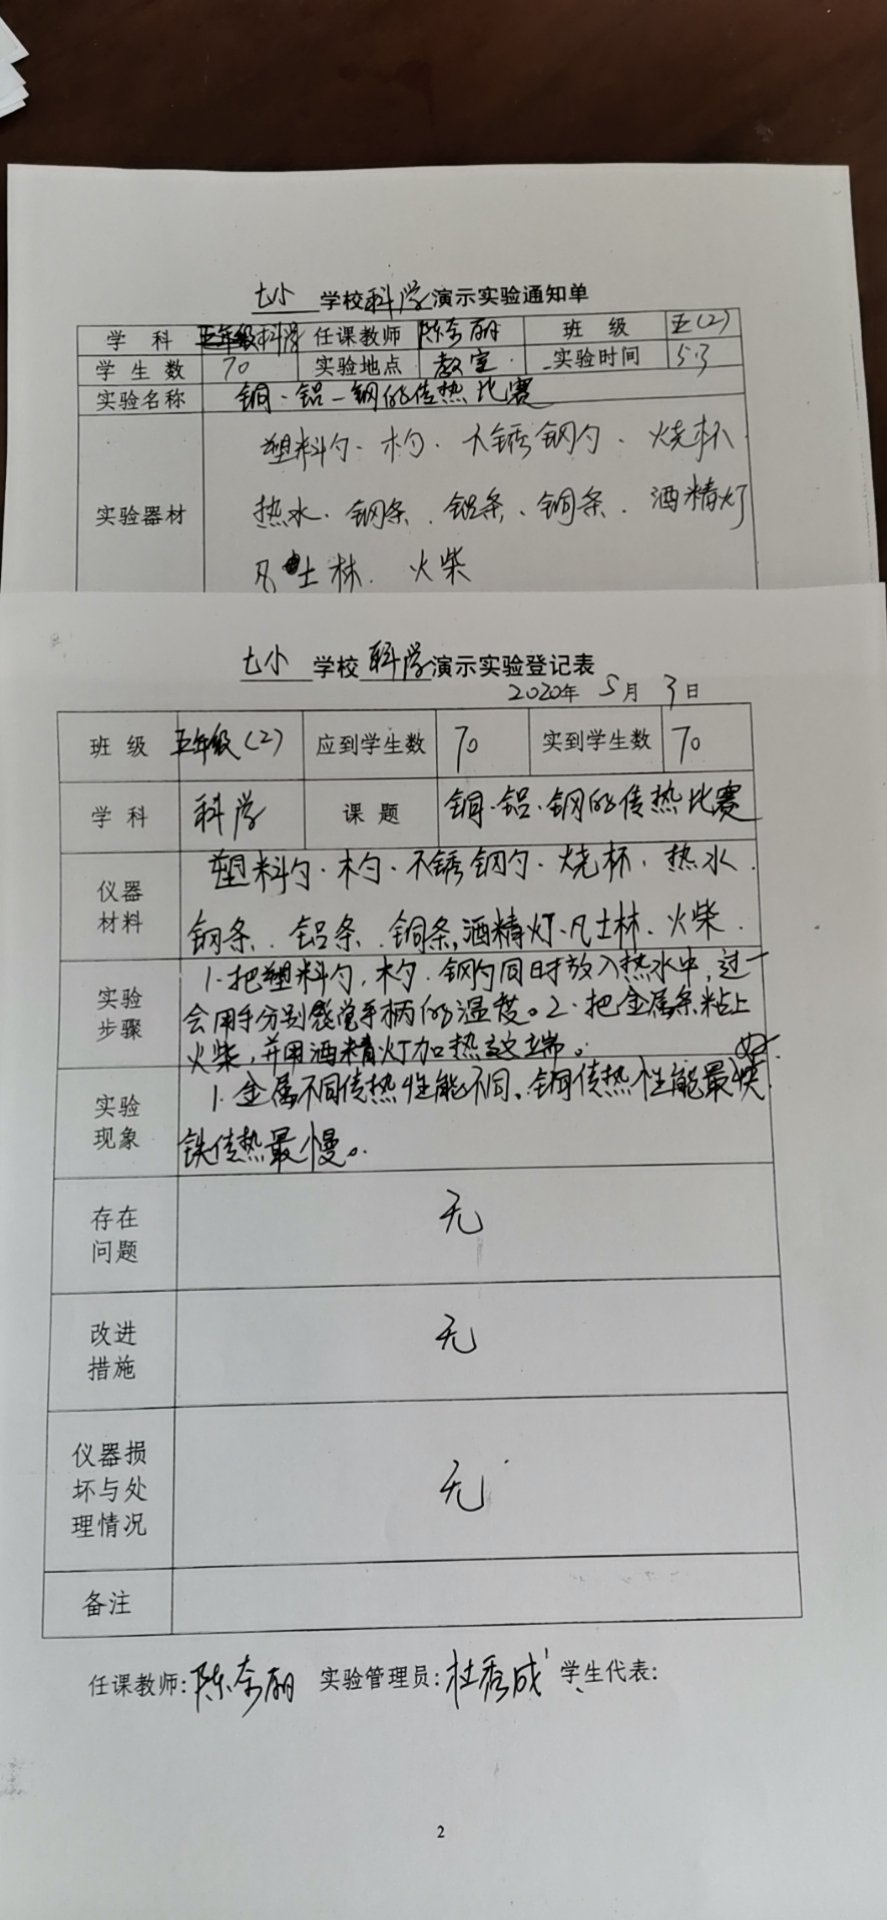 七小 学校科学演示实验通知单
学 科 五年级科学 任课教师 陈东丽 班 级 五(2)
学生数 70 实验地点 教室 实验时间 5.3
实验名称 铜·铝-钢的传热比赛
塑料勺·木勺·不锈钢勺·烧杯
实验器材 热水·钢条、铝条、铜条、酒精灯
凡士林、火柴
七小 学校 科学 演示实验登记表
2020年 5月 3日
班 级 五年级(2) 应到学生数 70 实到学生数 70
学 科 科学 课 题 铜·铝·钢的传热比赛
仪器材料 塑料勺·木勺·不锈钢勺·烧杯·热水
钢条、铝条、铜条,酒精灯、凡士林、火柴
实验步骤 1.把塑料勺,木勺·钢勺同时放入热水中,过一
会用手分别感觉手柄的温度。2.把金属条粘上
火柴,并用酒精灯加热这端。
实验现象 1.金属不同传热性能不同。铜传热性能最好
铁传热最慢。
存在问题 无
改进措施 无
仪器损坏与处理情况 无
备注
任课教师: 陈东丽 实验管理员: 杜秀成 学生代表:
2